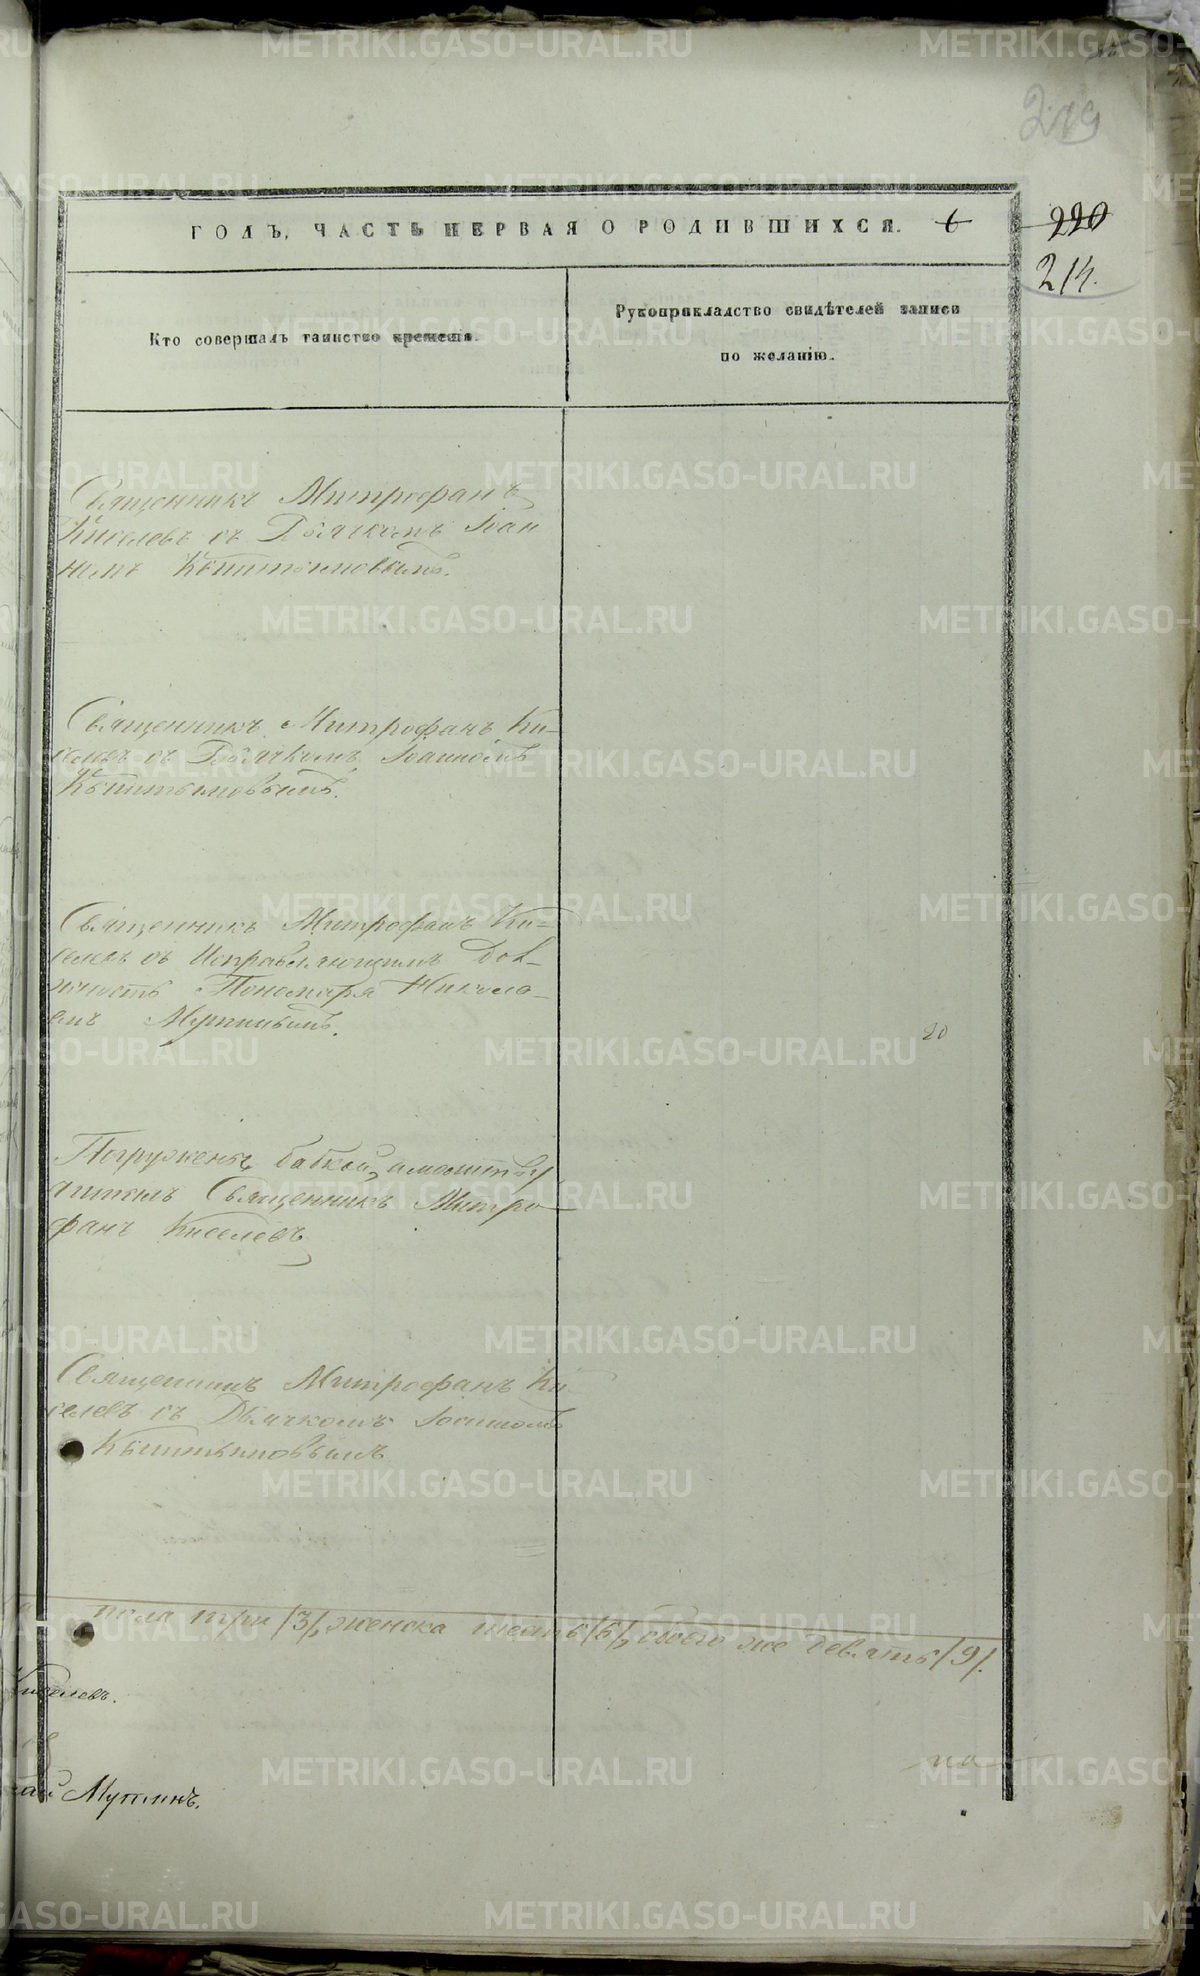 219
ГОДЪ, ЧАСТЬ ПЕРВАЯ О РОДИВШИХСЯ. 6
220
214.
Кто совершалъ таинство крещенія.
Рукоприкладство свидѣтелей записи
по желанію.
Священникъ Митрофанъ
Киселевъ съ Дьячкомъ Іоан
номъ Кыштымовымъ.
Священникъ Митрофанъ Ки-
селевъ съ Дьячкомъ Іоанномъ
Кыштымовымъ.
Священникъ Митрофанъ Ки-
селевъ съ Исправляющимъ Дол-
жность Пономаря Никола-
емъ Мутинымъ.
20
Погруженъ бабкой, а молитву
читалъ Священникъ Митро
фанъ Киселевъ
Священникъ Митрофанъ Ки
селевъ съ Дьячкомъ Іоанномъ
Кыштымовымъ
пола три /3/, женска шесть /6/, обоего же девять /9/.
Киселевъ.
Мутинъ.
METRIKI.GASO-URAL.RU